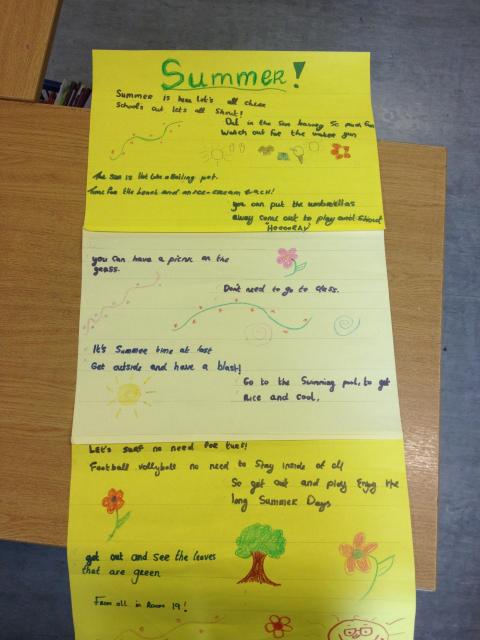 Summer!
Summer is here let's all cheer
Schools out let's all shout!
Out in the sun having so much fun
Watch out for the water gun
The sun is Hot like a boiling pot.
Time for the beach and an ice-cream each!
you can put the umbrellas
away come out to play and shout
"HOOORAY"
you can have a picnic on the
grass.
Don't need to go to class.
It's Summer time at last
Get outside and have a blast!
Go to the Swimming pool, to get
Nice and cool.
Let's surf no need for
Football vollyball no need to Stay inside at all
So get out and play Enjoy the
long Summer Days
get out and see the leaves
that are green
From all in Room 19!